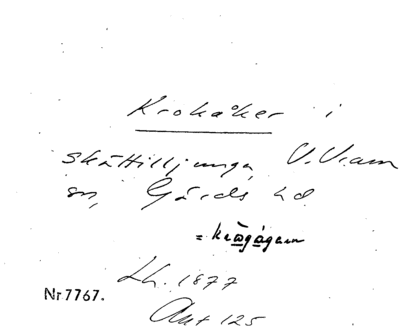 Krokåker i
Skättilljunga, V. Vram
sn, Gärds hd.
= krågågarn
Lh. 1877
Nr 7767.
Akt 125